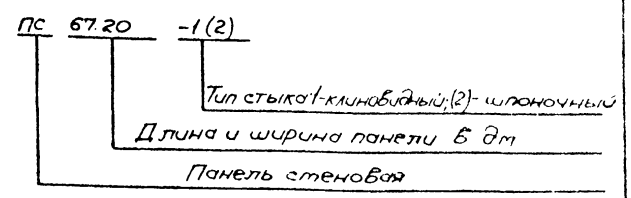 ПС 67.20 -1(2)
Тип стыка:1-клиновидный;(2)- шпоночный
Длина и ширина панели в дм
Панель стеновая